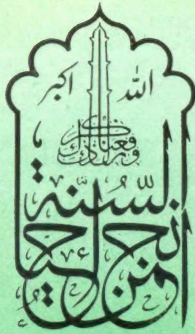 الله اكبر
ورفعنا لك ذكرك
انجمن احياء
السنة